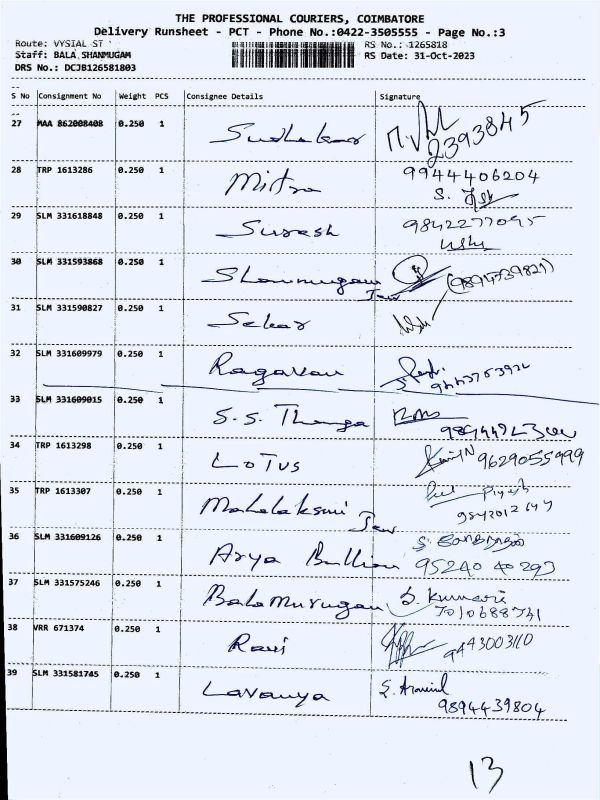 THE PROFESSIONAL COURIERS, COIMBATORE
Delivery Runsheet - PCT - Phone No.:0422-3505555 - Page No.:3
Route: VYSIAL ST RS No.: 1265818
Staff: BALA SHANMUGAM RS Date: 31-Oct-2023
DRS No.: DCJB126581803
S No Consignment No Weight PCS Consignee Details Signature
27 MAA 862008408 0.250 1 Sudhakar 2393845
28 TRP 1613286 0.250 1 Mitra 9944406204
S.
29 SLM 331618848 0.250 1 Suresh 9842277095
30 SLM 331593868 0.250 1 Shanmugam Jew (9894739821)
31 SLM 331590827 0.250 1 Sekar
32 SLM 331609979 0.250 1 Ragavan
33 SLM 331609015 0.250 1 S.S. Thanga
34 TRP 1613298 0.250 1 LOTUS 9629055999
35 TRP 1613307 0.250 1 Mahalaksmi Jew Piyush
36 SLM 331609126 0.250 1 Arya Bullion
95240 40297
37 SLM 331575246 0.250 1 Balamurugan S. Kumari
7010688731
38 VRR 671374 0.250 1 Ravi 9443003110
39 SLM 331581745 0.250 1 Lavanya S. Aravind
9894439804
13